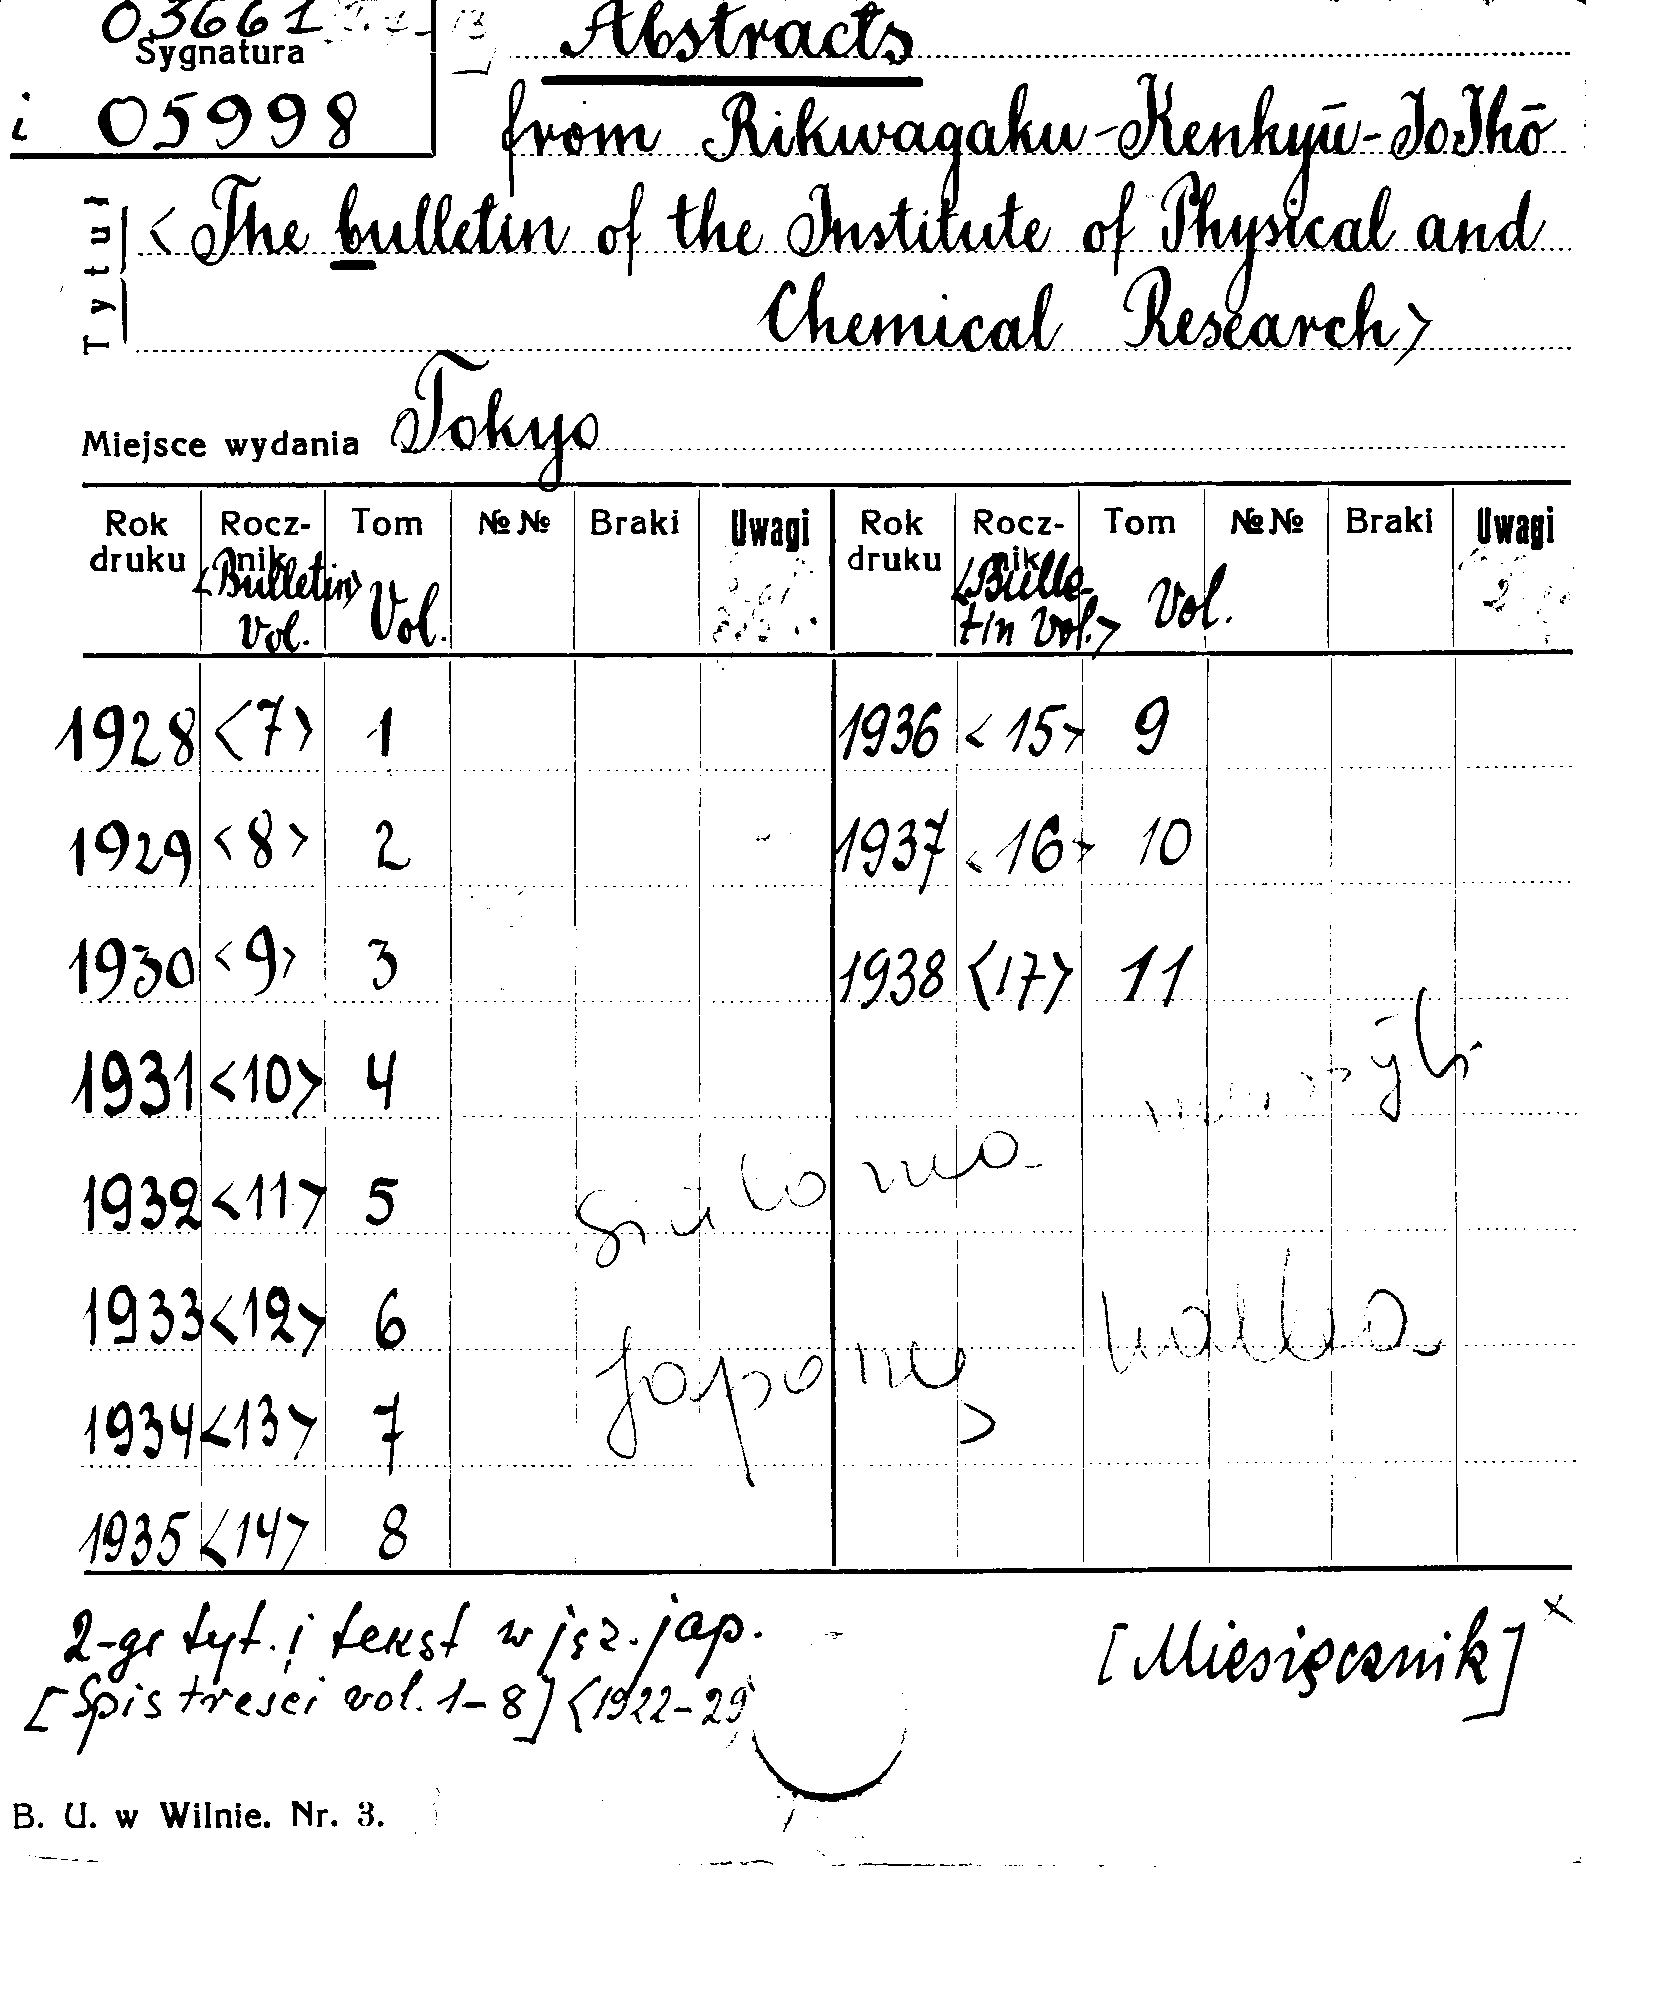 03661
Sygnatura
i 05998
Abstracts
from Rikwagaku-Kenkyū-Jo Ihō
Tytuł
<The bulletin of the Institute of Physical and
Chemical Research>
Miejsce wydania Tokyo
Rok druku Rocznik <Bulletin> Vol. Tom Vol. №№ Braki Uwagi Rok druku Rocznik <Bulletin Vol.> Tom Vol. №№ Braki Uwagi
1928 <7> 1 1936 <15> 9
1929 <8> 2 1937 <16> 10
1930 <9> 3 1938 <17> 11
1931 <10> 4
1932 <11> 5
1933 <12> 6
1934 <13> 7
1935 <14> 8
2-gi tyt. i tekst w jęz. jap.
[Spis treści vol. 1-8] <1922-29
[Miesięcznik] x
B. U. w Wilnie. Nr. 3.